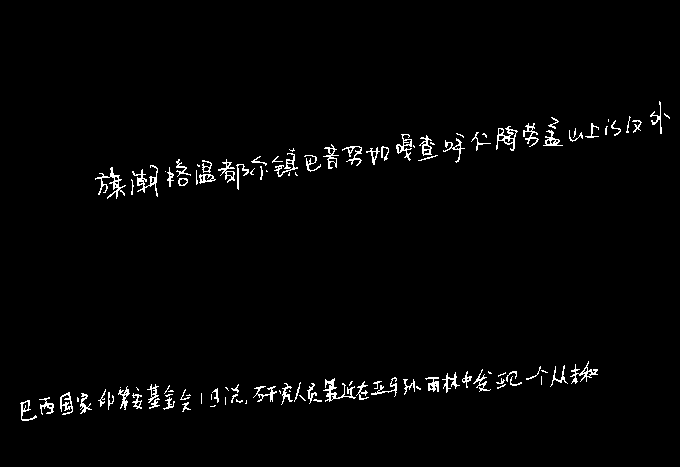 旗潮格温都尔镇巴音努如嘎查呼仁陶劳盖山上is仅外
巴西国家印第安基金会1日说,研究人员最近在亚马孙雨林中发现一个从未和